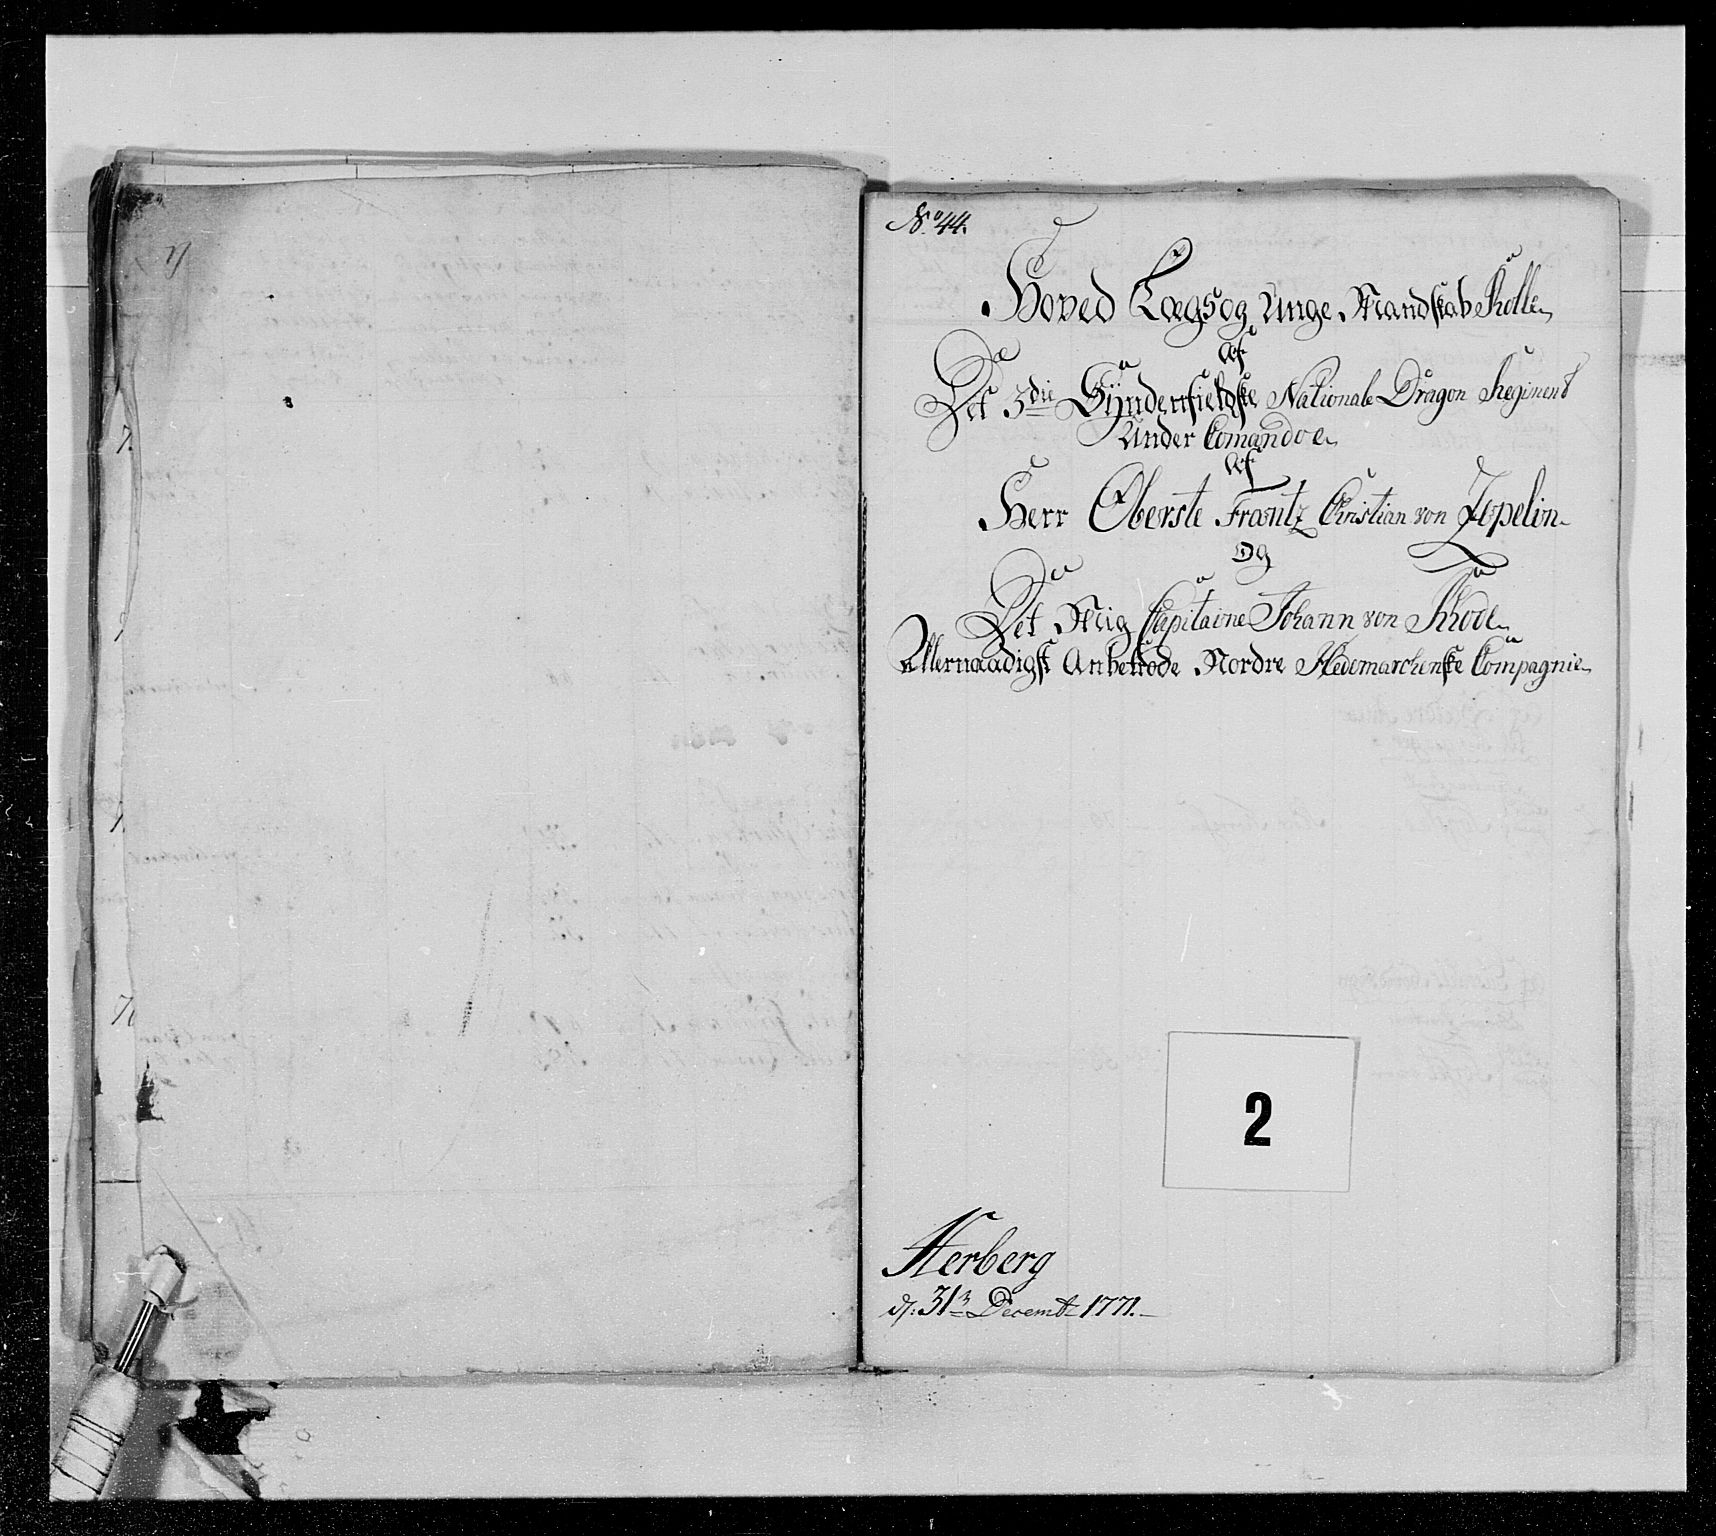 No 44.
Hoved Lægs og Unge Mandskabs Rolle
Af
Det 3die Syndenfieldske Nationale Dragon Regiment
Under Comandoe
Af
Herr Oberste Frantz Christian von Zepelin
Og
Det Mig Capitaine Johann von Rhode
Allernaadigst Anbetrode Nordre Hedemarchenske Compagnie
2
Herberg
d: 31 Decembr 1771.